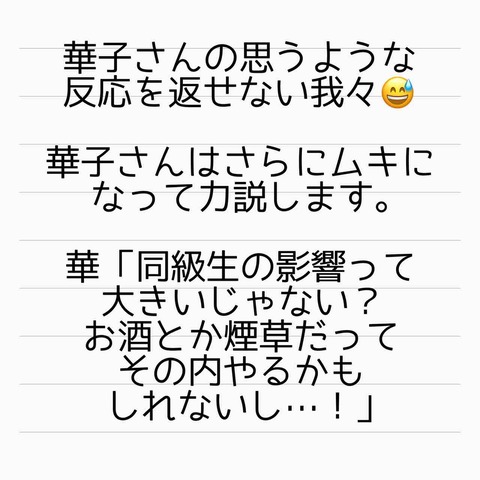 華子さんの思うような
反応を返せない我々😅
華子さんはさらにムキに
なって力説します。
華「同級生の影響って
大きいじゃない？
お酒とか煙草だって
その内やるかも
しれないし…！」